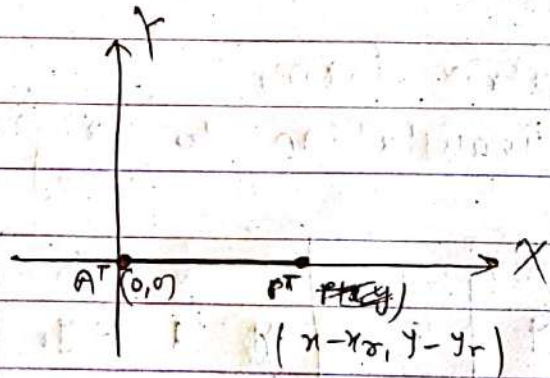 Y
X
A^T (0,0) P^T
(x-x_r, y-y_r)